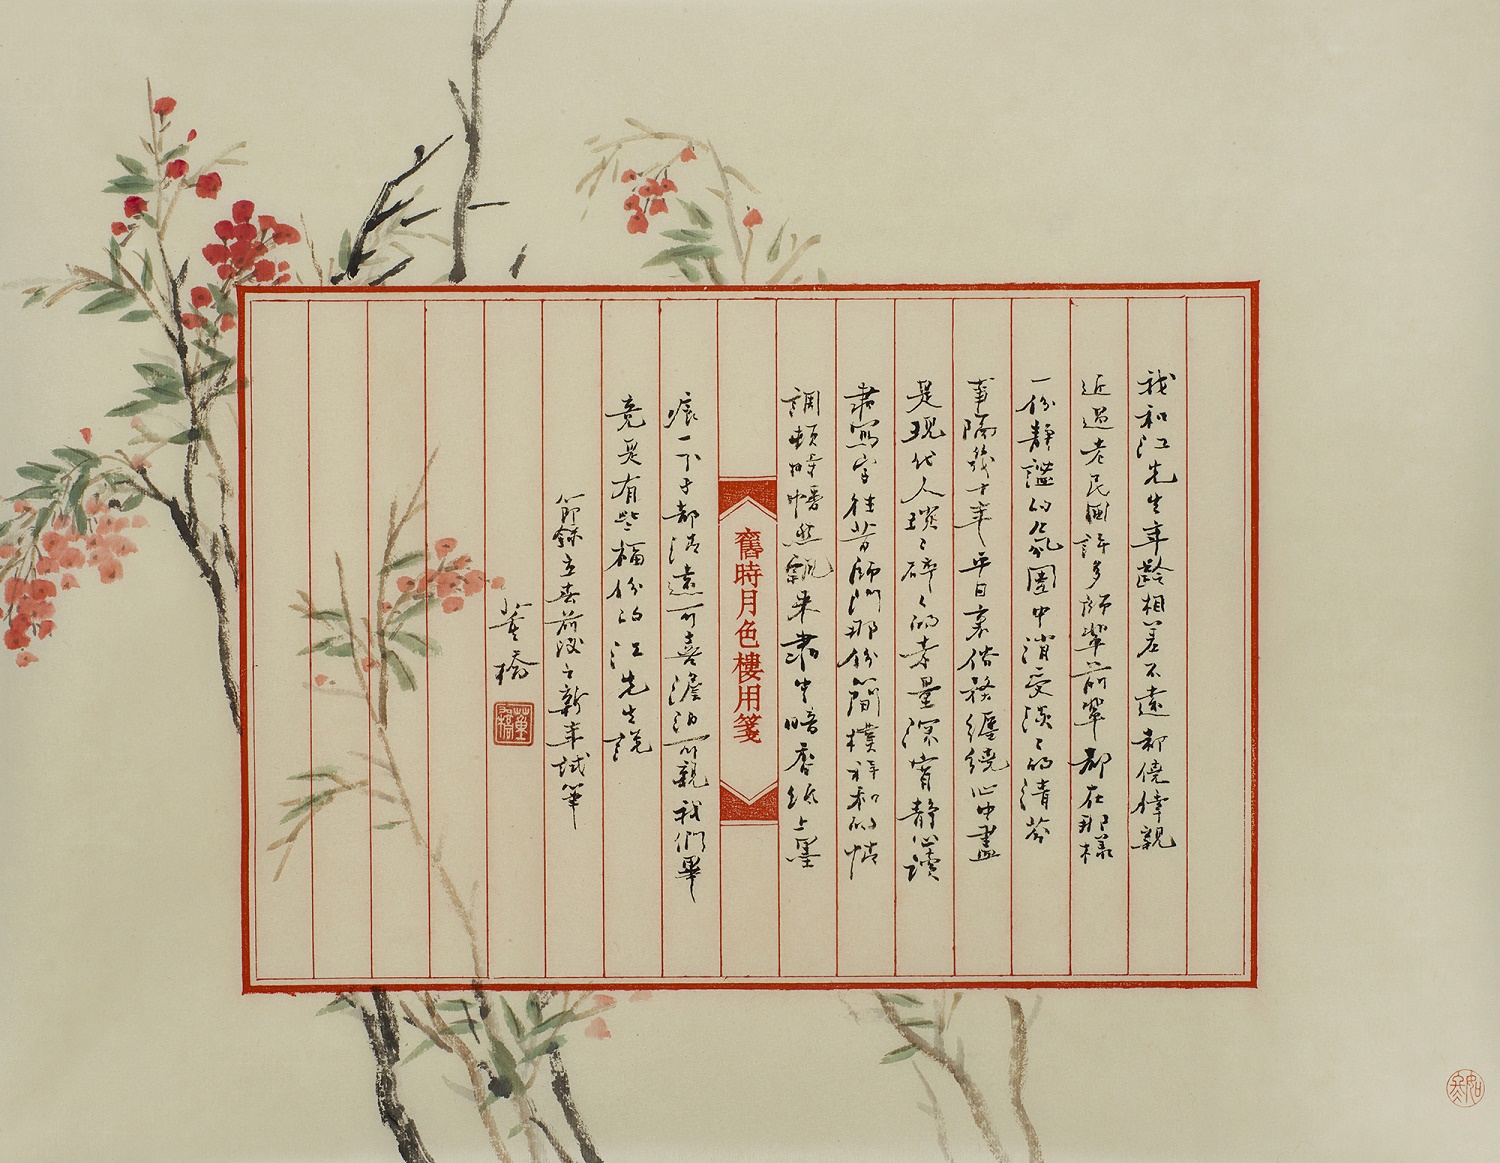 我和江先生年齡相差不遠都僥倖親
近過老民國許多師輩前輩都在那樣
一份靜謐的氛圍中消受淡淡的清芬
事隔幾十年平日裏俗務纏繞心中盡
是現代人瑣瑣碎碎的考量深宵靜心讀
書寫字往昔師門那份簡樸祥和的情
調頓時悄然飄來書中暗香紙上墨
舊時月色樓用箋
痕一下子都清遠可喜澹泊可親我們畢
竟是有些福份的江先生說
節錄立春前後之新年試筆
董橋
董橋